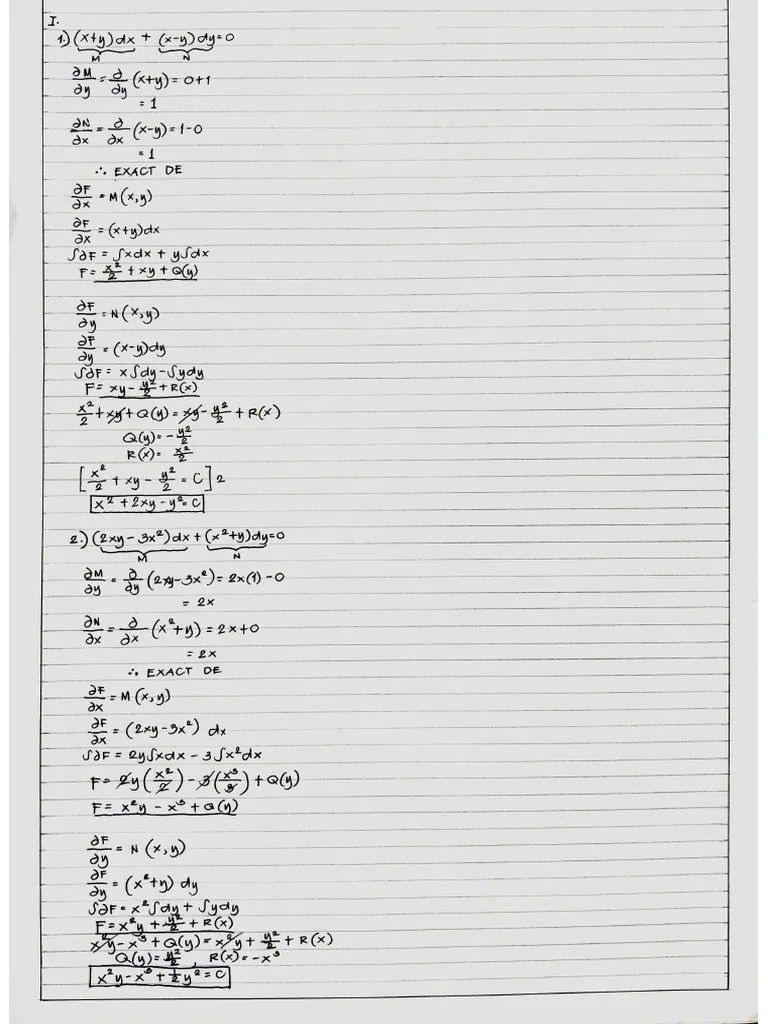 I.
1.) (x+y)dx + (x-y)dy=0
M N
∂M/∂y = ∂/∂y (x+y) = 0+1
= 1
∂N/∂x = ∂/∂x (x-y) = 1-0
= 1
∴ EXACT DE
∂F/∂x = M(x,y)
∂F/∂x = (x+y)dx
∫∂F = ∫xdx + y∫dx
F = x²/2 + xy + Q(y)
∂F/∂y = N(x,y)
∂F/∂y = (x-y)dy
∫∂F = x∫dy - ∫ydy
F = xy - y²/2 + R(x)
x²/2 + xy + Q(y) = xy - y²/2 + R(x)
Q(y) = - y²/2
R(x) = x²/2
[x²/2 + xy - y²/2 = C] 2
x² + 2xy - y² = C
2.) (2xy - 3x²)dx + (x²+y)dy=0
M N
∂M/∂y = ∂/∂y (2xy-3x²) = 2x(1) - 0
= 2x
∂N/∂x = ∂/∂x (x²+y) = 2x+0
= 2x
∴ EXACT DE
∂F/∂x = M(x,y)
∂F/∂x = (2xy-3x²) dx
∫∂F = 2y∫xdx - 3∫x²dx
F = 2y(x²/2) - 3(x³/3) + Q(y)
F = x²y - x³ + Q(y)
∂F/∂y = N (x,y)
∂F/∂y = (x²+y) dy
∫∂F = x²∫dy + ∫ydy
F = x²y + y²/2 + R(x)
x²y - x³ + Q(y) = x²y + y²/2 + R(x)
Q(y) = y²/2 , R(x) = -x³
x²y - x³ + 1/2 y² = C